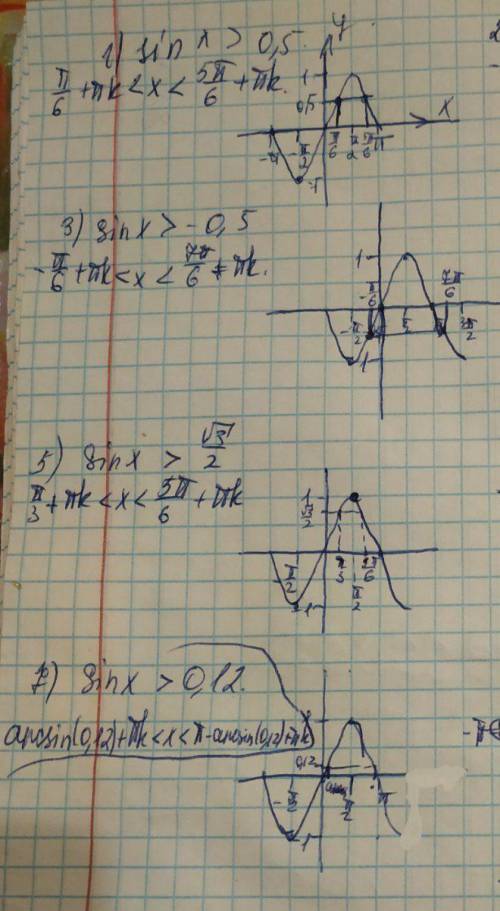 1) sin x > 0,5
π/6 + πk < x < 5π/6 + πk.
y
1
0,5
x
-π -π/2 π/6 π/2 5π/6 π
-1
3) sin x > -0,5
-π/6 + πk < x < 7π/6 + πk.
1
-π/6 7π/6
-π/2 π/2 π 3π/2
1
5) sin x > √3/2
π/3 + πk < x < 5π/6 + πk
1
√3/2
-π/2 π/3 5π/6
π/2
1
7) sin x > 0,12.
arcsin(0,12) + πk < x < π - arcsin(0,12) + πk
0,12
-π/2 π/2 π
1